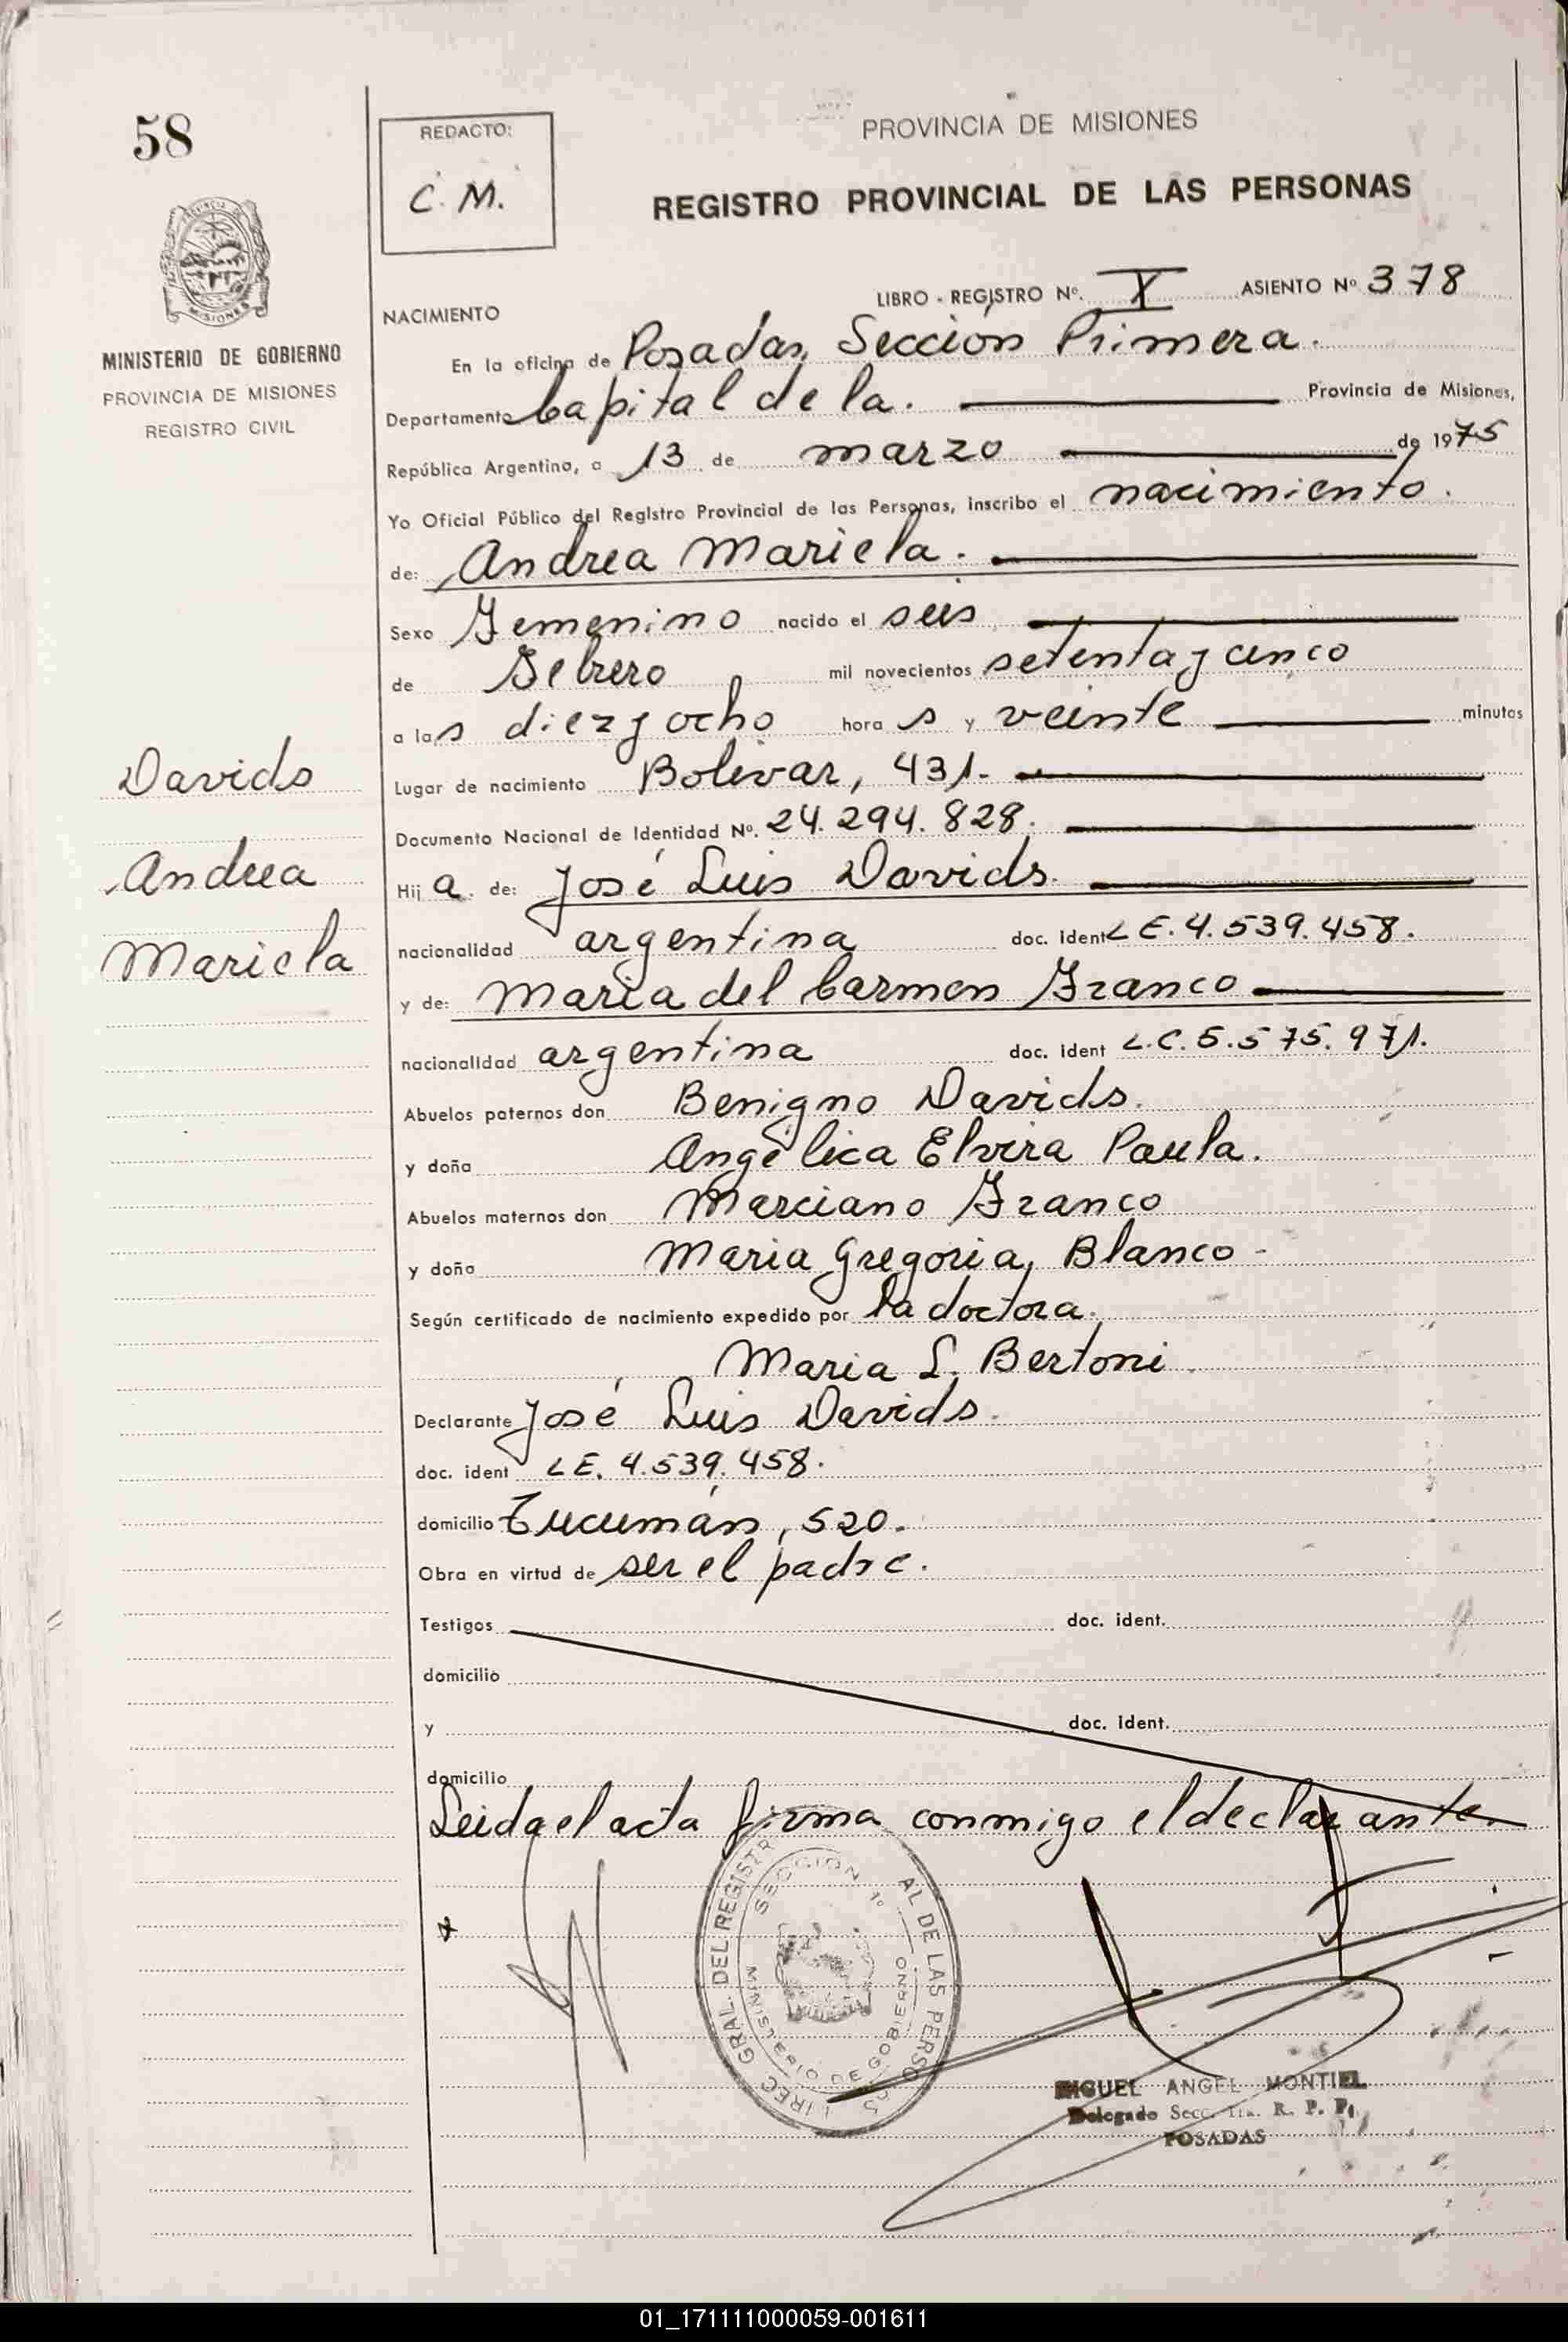 58
REDACTO:
C. M.
PROVINCIA DE MISIONES
REGISTRO PROVINCIAL DE LAS PERSONAS
MISIONES
MINISTERIO DE GOBIERNO
PROVINCIA DE MISIONES
REGISTRO CIVIL
LIBRO - REGISTRO Nº. I ASIENTO Nº 378
NACIMIENTO
En la oficina de Posadas, Sección Primera.
Departamento Capital de la. Provincia de Misiones,
República Argentina, a 13 de marzo de 1975
Yo Oficial Público del Registro Provincial de las Personas, inscribo el nacimiento.
de: Andrea Mariela.
Sexo Femenino nacido el seis
de Febrero mil novecientos setenta y cinco
a las diez y ocho hora s y veinte minutos
Lugar de nacimiento Bolivar, 431.-
Documento Nacional de Identidad Nº. 24.294.828.
Davids
Andrea
Mariela
Hij a. de: José Luis Davids.
nacionalidad argentina doc. ident L E. 4.539.458.
y de: Maria del Carmen Franco
nacionalidad argentina doc. ident L.C. 5.575.971.
Abuelos paternos don Benigno Davids.
y doña Angélica Elvira Paula.
Abuelos maternos don Marciano Franco
y doña Maria Gregoria Blanco -
Según certificado de nacimiento expedido por la doctora
Maria L. Bertoni
Declarante José Luis Davids.
doc. ident L E. 4.539.458.
domicilio Tucumán, 520.
Obra en virtud de ser el padre.
Testigos doc. ident.
domicilio
y doc. ident.
domicilio
Leida el acta firma conmigo el declarante
DIREC. GRAL DEL REGISTR AL DE LAS PERSO AS
SECCION 1º
MINISTERIO DE GOBIERNO
MIGUEL ANGEL MONTIEL
Delegado Secc. 1ra. R. P. P.
POSADAS
01_171111000059-001611